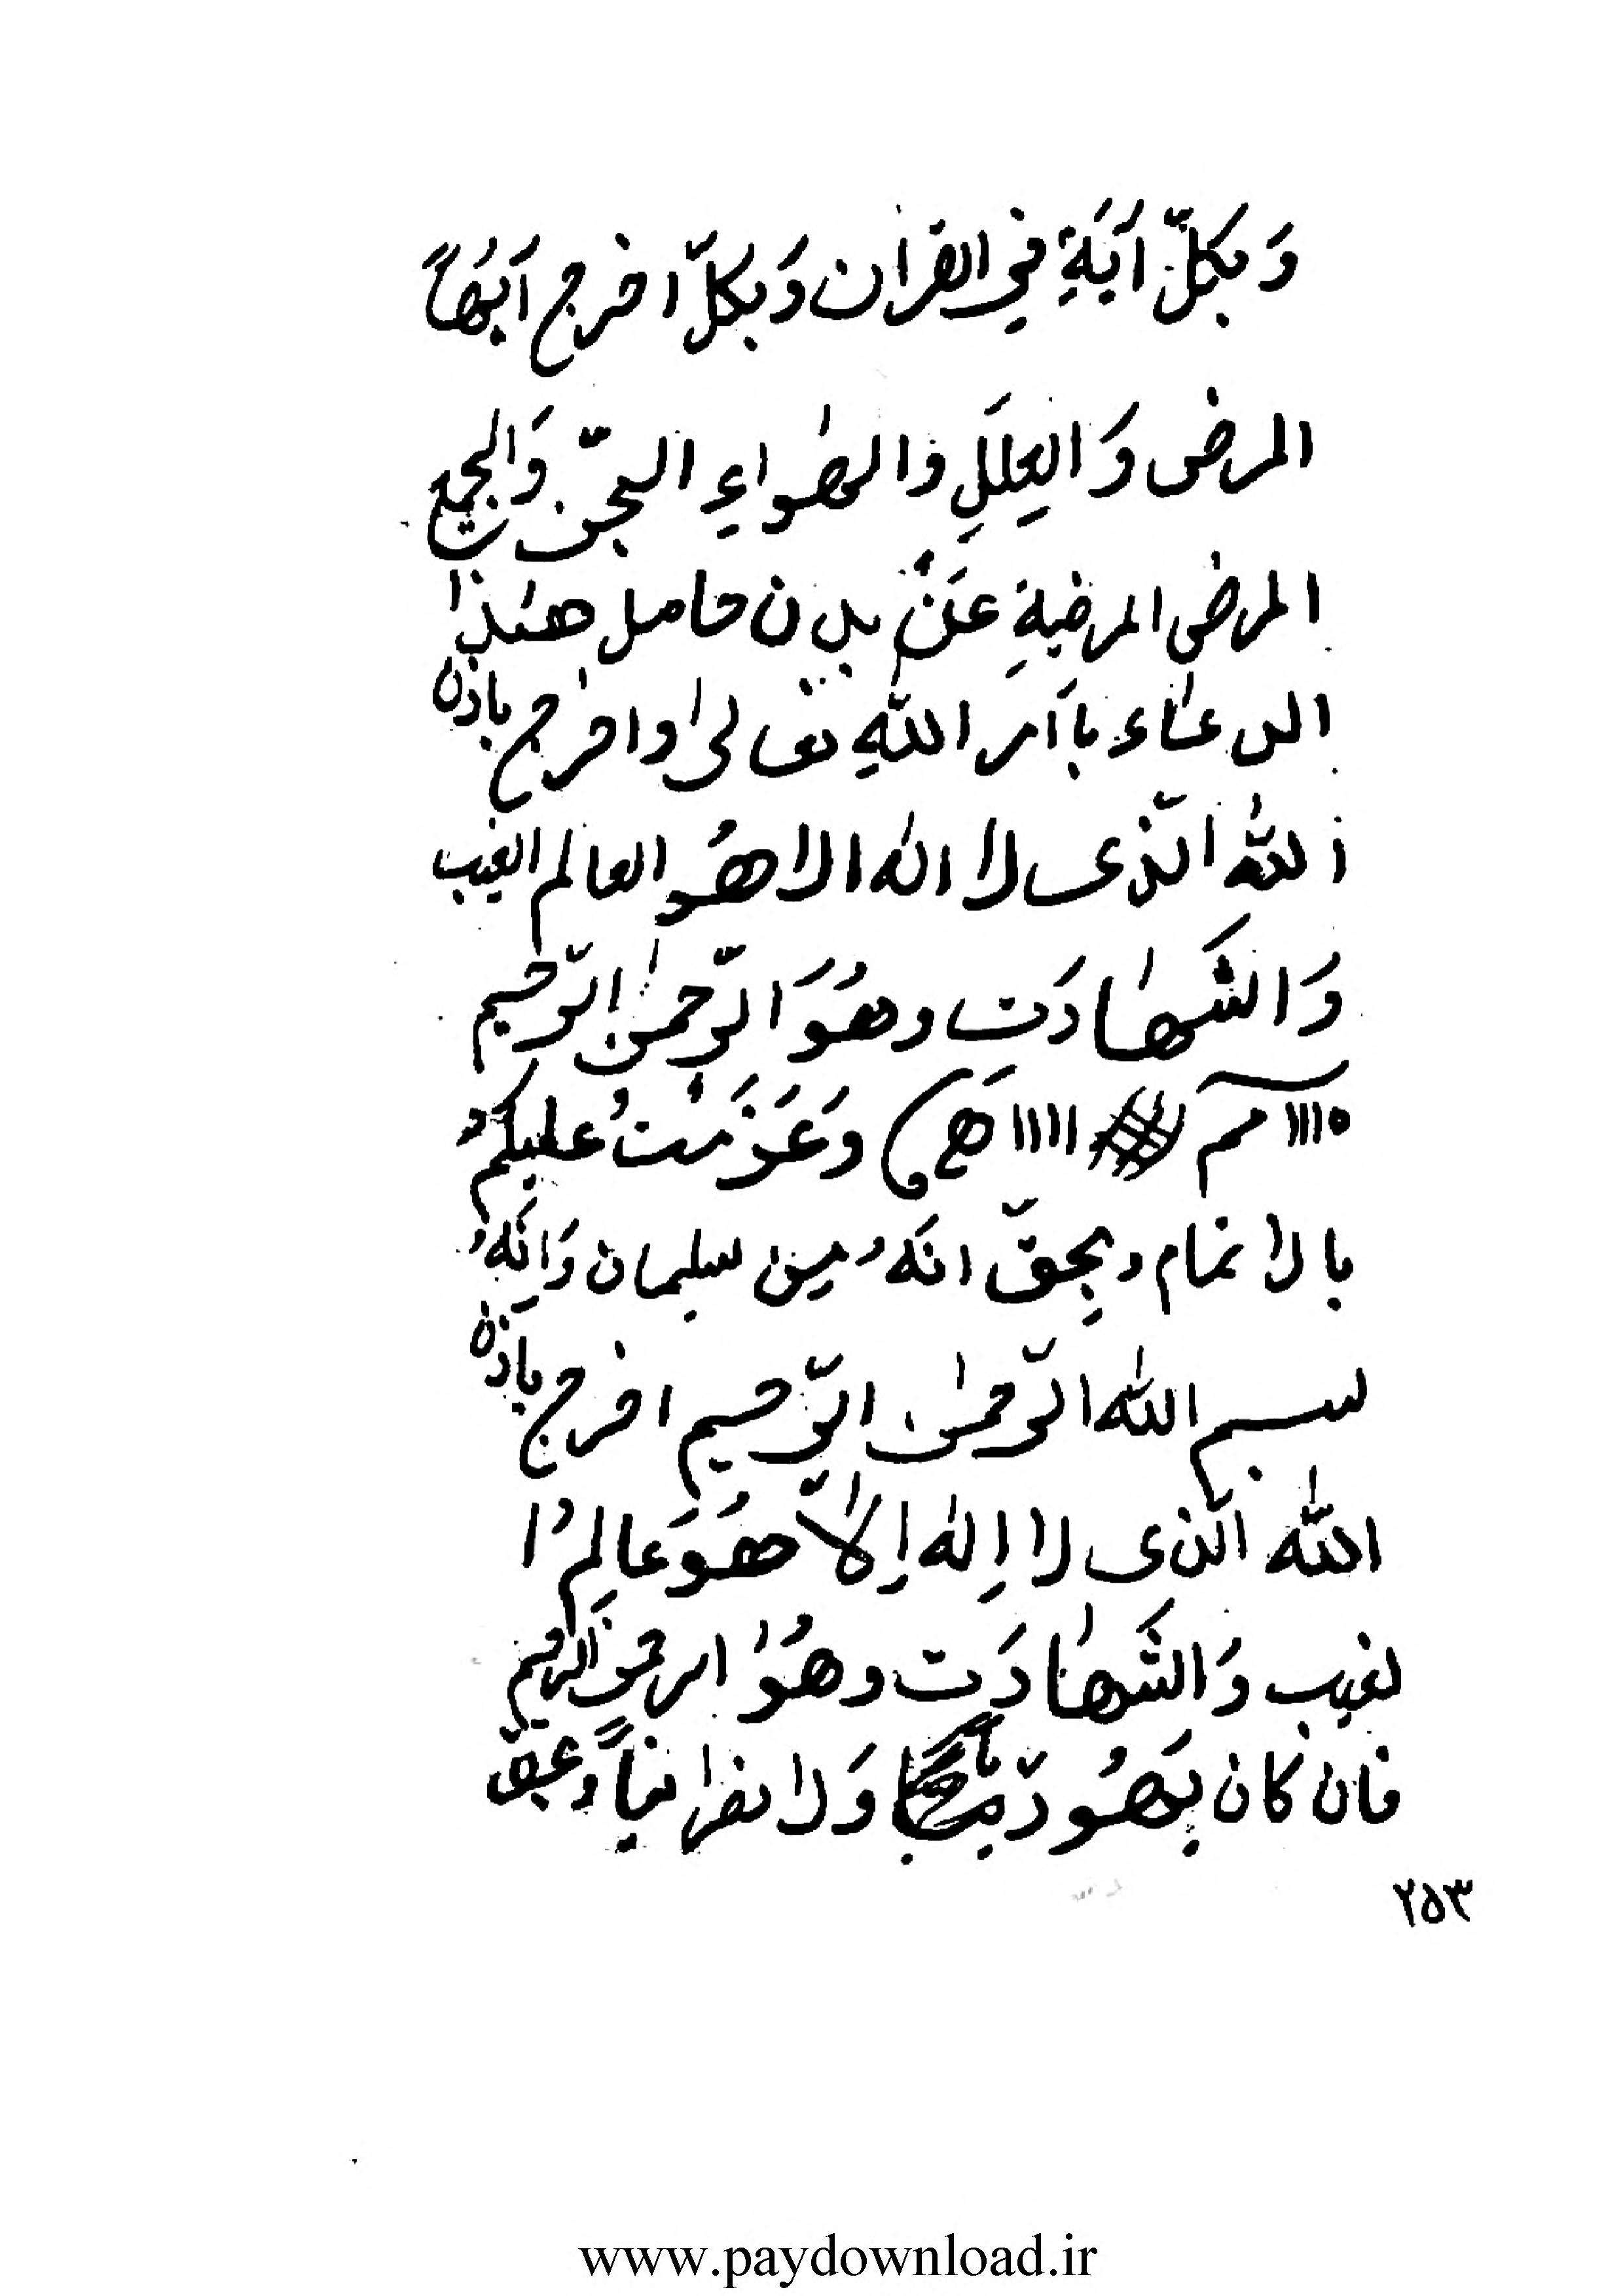 وَ بِكلِّ آيَةِ فِي القرآن وَ بكلّ اخرج اَيّهاً
المرض وَ العِلَلِ والهٰواءِ الجّن وَالجميع
المرض المرضيةِ عَنْ بدن حامل هٰذا
الدعاء باَمر اللّهِ تعالیٰ واخرج باذن
اللّٰه الّذی لا اله الا هُو العالم الغیب
وَ الشَهٰادَت وهُوَ الرّحمن الرّحیم
١١١١ م ١١١١١ وَعَزَمْتُ علیکم
بالاتمام وبِحقّ انَهُ من سلیمان وَانَهُ
بسم اللّٰه الرّحمٰن الرّحیم اخرج باذن
اللّٰه الّذی لا اِلٰه اِلّا هُوَ عالِمُ ا
لغیب وَ الشَهٰادَت وهُوَ الرحمن الرحیم
فان کان یَهُودّیاً وَ لا نصرانیاً وَبحق
٢٥٣
www.paydownload.ir